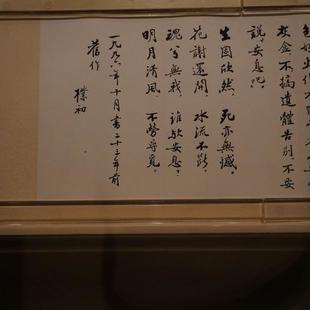 包好火化不
灰盒、不搞遺體告別、不要
說:安息吧。
生固欣然、死亦無憾。
花謝還開、水流不斷。
魂兮無我、誰歟安息?
明月清風、不勞尋覓。
一九九六年十月書二十三年前
舊作
樸初